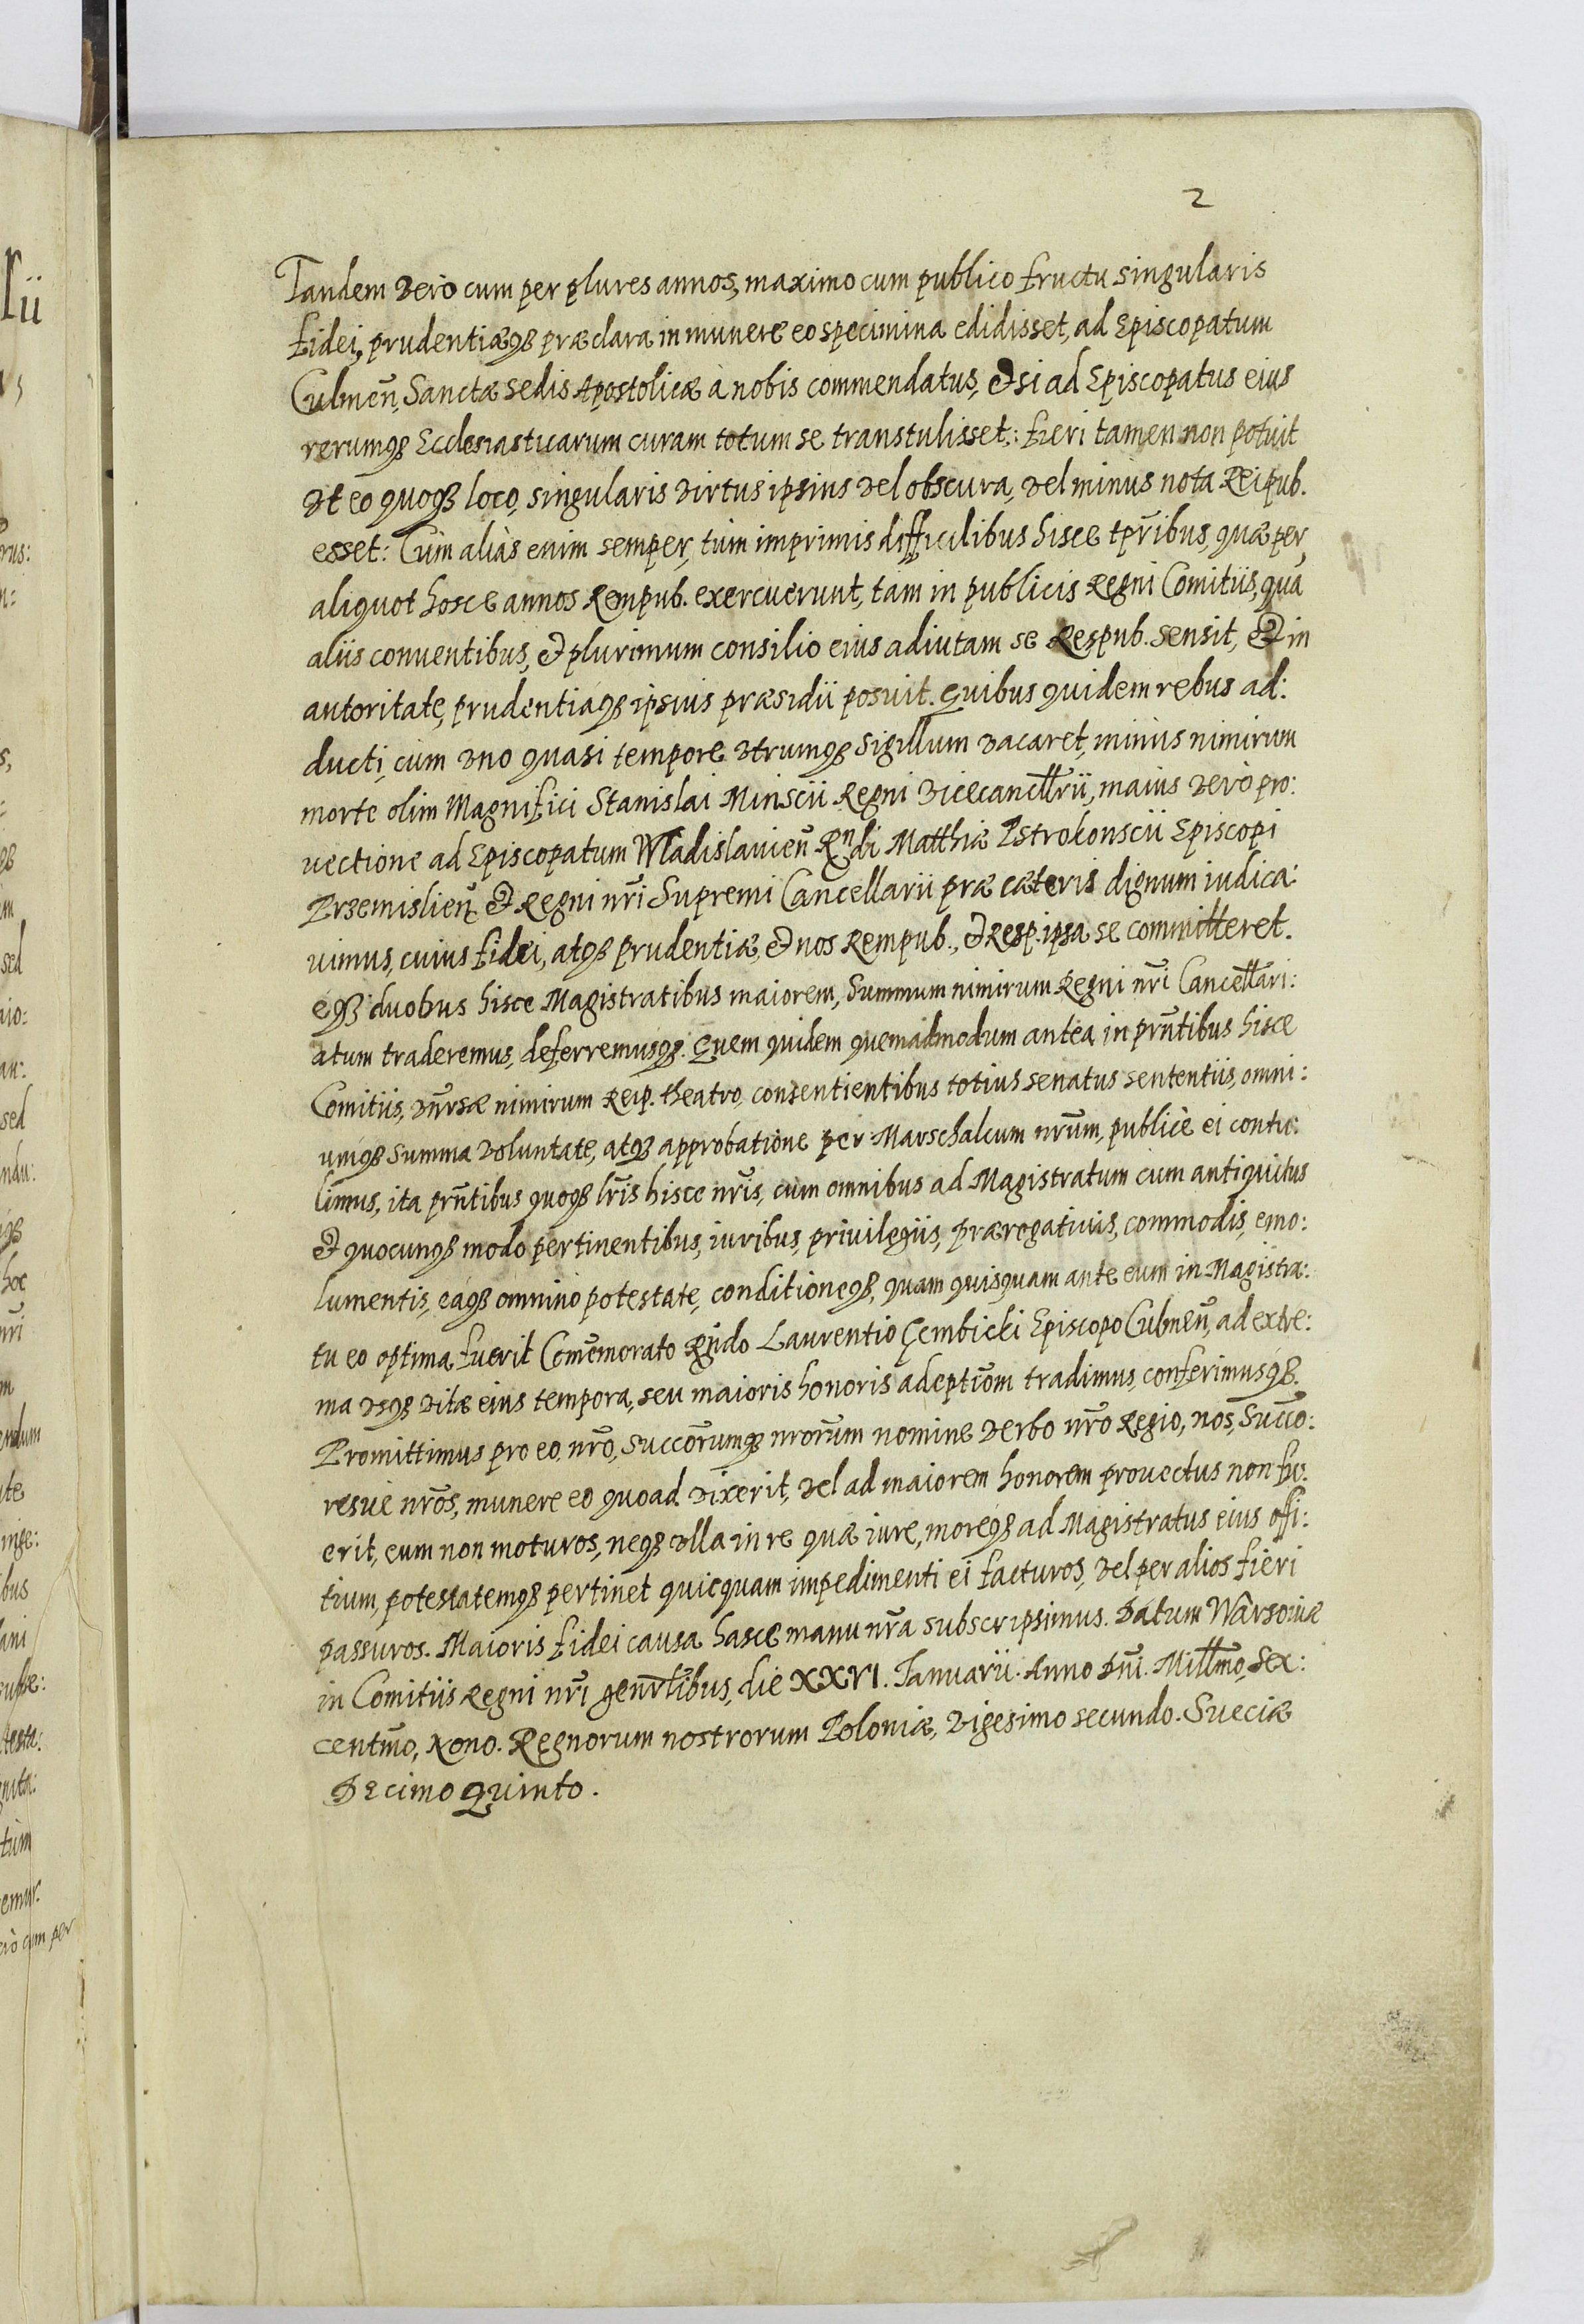 2
Tandem vero cum per plures annos, maximo cum publico fructu singularis
fidei, prudentiæqȝ præclara in munere eo specimina edidisset, ad Episcopatum
Culmeñ, Sanctæ sedis Apostolicæ à nobis commendatus, et si ad Episcopatus eius
rerumqȝ Ecclesiasticarum curam totum se transtulisset: fieri tamen non potuit
vt eo quoqȝ loco, singularis virtus ipsius vel obscura, vel minus nota Reipub.
esset: Cùm aliàs enim semper, tùm imprimis difficilibus hisce tp̃ribus, quæ per
aliquot hosce annos Rempub. exercuerunt, tam in publicis Regni Comitiis, quã
aliis conuentibus, et plurimum consilio eius adiutam se Respub. sensit, et in
autoritate, prudentiaqȝ ipsius præsidii posuit. Quibus quidem rebus ad:
ducti, cum vno quasi tempore vtrumqȝ Sigillum vacaret, minùs nimirum
morte olim Magnifici Stanislai Minscii Regni Vicecanc̃llrii, maius verò pro:
vectione ad Episcopatum Wladislauieñ Rndi Matthiæ Pstrokonscii Episcopi
Præmislieñ et Regni nr̃i Supremi Cancellarii præ cæteris dignum iudica:
uimus, cuius fidei, atqȝ prudentiæ, et nos Rempub., et Resp. ipsa se committeret.
eqȝ duobus hisce Magistratibus maiorem, Summum nimirum Regni nr̃i Cancellari:
atum traderemus, deferremusqȝ. Quem quidem quemadmodum antea in prñtibus hisce
Comitiis, vñrsæ nimirum Reip. theatro, consentientibus totius senatus sententiis, omni:
umqȝ summa voluntate, atqȝ approbatione per Marschalcum nr̃um, publicè ei contu:
limus, ita prñtibus quoqȝ lr̃is hisce nr̃is, cum omnibus ad Magistratum eum antiquitus
et quocunqȝ modo pertinentibus, iuribus, priuilegiis, prærogatiuis, commodis, emo:
lumentis, eaqȝ omnino potestate, conditioneqȝ, quam quisquam ante eum in Magistra:
tu eo optima fuerit Com̃emorato Rñdo Laurentio Gembicki Episcopo Culmeñ, ad extre:
ma vsqȝ vitæ eius tempora, seu maioris honoris adeptiõm tradimus, conferimusqȝ.
Promittimus pro eo nr̃o, succõrumqȝ nrõrum nomine verbo nr̃o Regio, nos, Succo:
resue nr̃os, munere eo quoad vixerit, vel ad maiorem honorem prouectus non fu:
erit, eum non moturos, neqȝ vlla in re quæ iure, moreqȝ ad Magistratus eius offi:
tium, potestatemqȝ pertinet quicquam impedimenti ei facturos, vel per alios fieri
passuros. Maioris fidei causa hasce manu nr̃a subscripsimus. Datum Warsouiæ
in Comitiis Regni nr̃i genr̃libus, die XXVI. Januarii. Anno Dñi. Millm̃o, Sex:
centm̃o, Nono. Regnorum nostrorum Poloniæ, Vigesimo secundo. Sueciæ
Decimo Quinto.